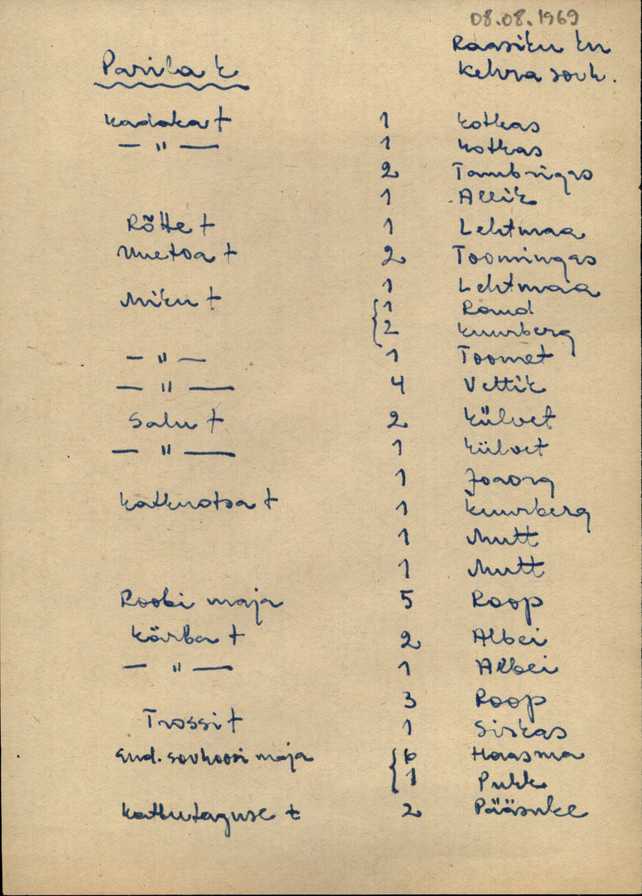 08.08.1969
Raasiku kn
Parila k
Kehra sovh.
Kadaka t 1 Kotkas
— " — 1 Kotkas
2 Tambrigas
1 Allik
Rõtte t 1 Lehtmaa
Uuetoa t 2 Toomingas
1 Lehtmaa
Miku t { 1 Raud
2 Kuurberg
— " — 1 Toomet
— " — 4 Vettik
Salu t 2 Külvet
— " — 1 Külvet
1 Joaorg
Katkuotsa t 1 Kuurberg
1 Mutt
1 Mutt
Roobi maja 5 Roop
Kärba t 2 Albei
— " — 1 Albei
3 Roop
Trossi t 1 Siskas
End. sovhoosi maja { 6 Haasma
1 Pukk
Katkutaguse t 2 Pääsuke